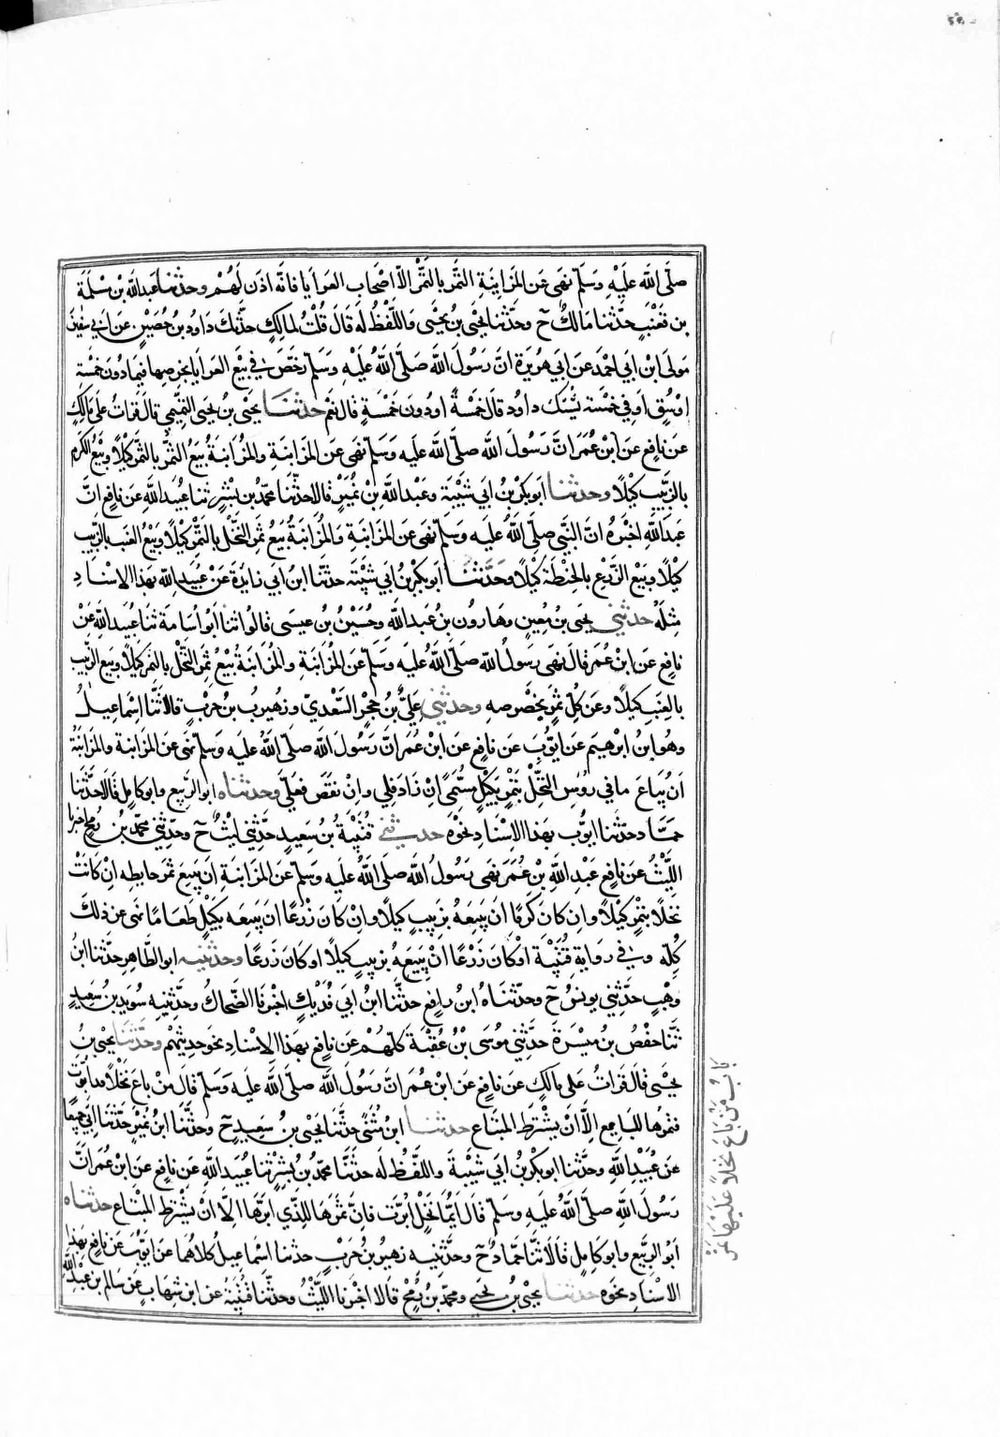 صلى الله عليه وسلم نهى عن المزابنة الثمر بالتمر الا اصحاب العرايا فانه اذن لهم وحدثنا عبدالله بن مسلمة
بن قعنب حدثنا مالك ح وحدثنا يحيى بن يحيى واللفظ له قال قلت لمالك حدثك داود بن حصين عن ابي سفين
مولى ابن ابي احمد عن ابي هريرة ان رسول الله صلى الله عليه وسلم رخص في بيع العرايا بخرصها فيما دون خمسة
اوسق او في خمسة يشك داود قال خمسة او دون خمسة قال نعم حدثنا يحيى بن يحيى التميمي قال قرات على مالك
عن نافع عن ابن عمر ان رسول الله صلى الله عليه وسلم نهى عن المزابنة والمزابنة بيع الثمر بالتمر كيلا وبيع الكرم
بالزبيب كيلا وحدثنا ابو بكر بن ابي شيبة وعبدالله بن نمير قالا حدثنا محمد بن بشر ثنا عبيدالله عن نافع ان
عبدالله اخبره ان النبي صلى الله عليه وسلم نهى عن المزابنة والمزابنة بيع ثمر النخل بالتمر كيلا وبيع العنب بالزبيب
كيلا وبيع الزرع بالحنطة كيلا وحدثنا ابو بكر بن ابي شيبة حدثنا ابن ابي زايدة عن عبيدالله بهذا الاسناد
مثله حدثني يحيى بن معين وهارون بن عبدالله وحسين بن عيسى قالوا ثنا ابو اسامة ثنا عبيدالله عن
نافع عن ابن عمر قال نهى رسول الله صلى الله عليه وسلم عن المزابنة والمزابنة بيع ثمر النخل بالتمر كيلا وبيع الزبيب
بالعنب كيلا وعن كل ثمر بخرصه وحدثني علي بن حجر السعدي وزهير بن حرب قالا ثنا اسماعيل
وهو ابن ابرهيم عن ايوب عن نافع عن ابن عمر ان رسول الله صلى الله عليه وسلم نهى عن المزابنة والمزابنة
ان يباع ما في روس النخل بتمر بكيل مسمى ان زاد فلي وان نقص فعلي وحدثناه ابو الربيع وابو كامل قالا حدثنا
حماد حدثنا ايوب بهذا الاسناد نحوه حدثني قتيبة بن سعيد حدثني ليث ح وحدثني محمد بن رمح اخبرنا
الليث عن نافع عبد الله بن عمر نهى رسول الله صلى الله عليه وسلم عن المزابنة ان يبيع ثمر حايطه ان كانت
نخلا بتمر كيلا وان كان كرما ان يبيعه بزبيب كيلا وان كان زرعا ان يبيعه بكيل طعاما نهى عن ذلك
كله وفي رواية قتيبة او كان زرعا ان يبيعه بزبيب كيلا او كان زرعا وحدثنيه ابو الطاهر حدثنا ابن
وهب حدثني يونس ح وحدثناه ابن رافع حدثنا ابن ابي فديك اخبرنا الضحاك وحدثنيه سويد بن سعيد
ثنا حفص بن ميسرة حدثني موسى بن عقبة كلهم عن نافع بهذا الاسناد نحو حديثهم وحدثنا يحيى بن
يحيى قال قرات على مالك عن نافع عن ابن عمر ان رسول الله صلى الله عليه وسلم قال من باع نخلا قد ابرت
فثمرها للبايع الا ان يشترط المبتاع حدثنا ابن مثنى حدثنا يحيى بن سعيد ح وحدثنا ابن نمير حدثنا ابي جميعا
عن عبيد الله وحدثنا ابو بكر بن ابي شيبة واللفظ له حدثنا محمد بن بشر ثنا عبيدالله عن نافع عن ابن عمر ان
رسول الله صلى الله عليه وسلم قال ايما نخل ابرت فان ثمرها للذي ابرها الا ان يشترط المبتاع حدثناه
ابو الربيع وابو كامل قالا ثنا حماد ح وحدثنيه زهير بن حرب حدثنا اسماعيل كلاهما عن ايوب عن نافع بهذا
الاسناد نحوه حدثنا يحيى بن يحيى ومحمد بن رمح قالا اخبرنا الليث وحدثنا قتيبة عن ابن شهاب عن سالم بن عبدالله
باب من باع نخلا عليها ثمر